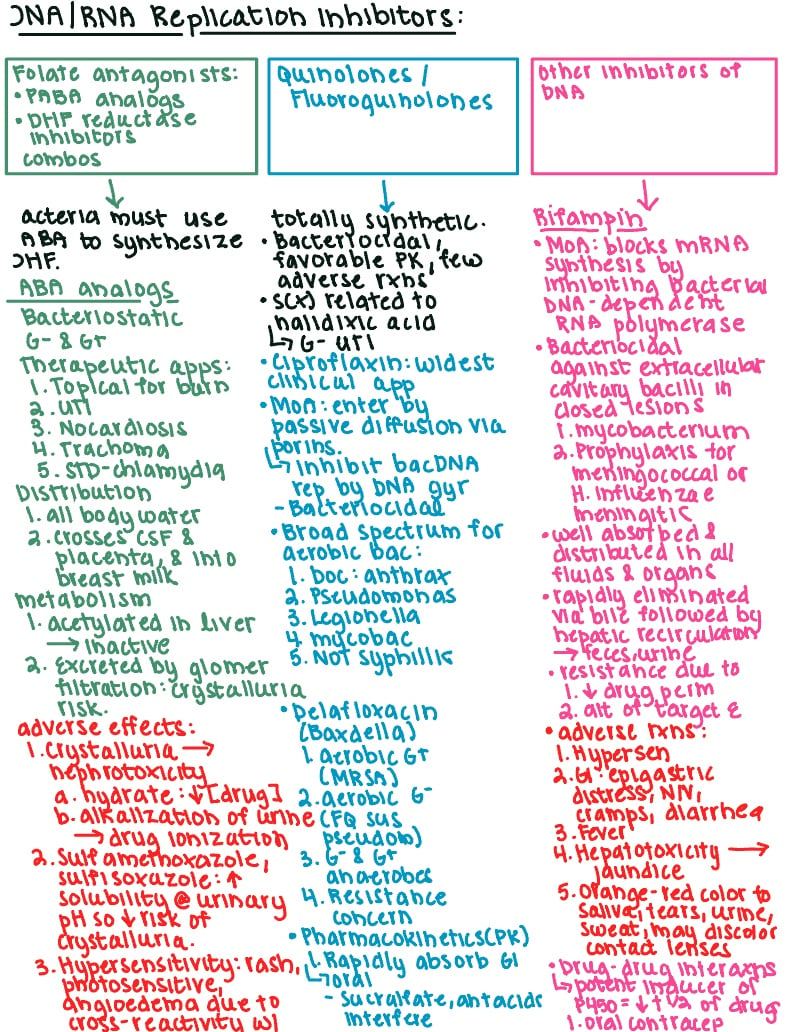 DNA/RNA Replication Inhibitors:
Folate antagonists:
• PABA analogs
• DHF reductase
inhibitors
combos
acteria must use
ABA to synthesize
DHF.
ABA analogs
Bacteriostatic
G- & G+
Therapeutic apps:
1. Topical for burn
2. UTI
3. Nocardiosis
4. Trachoma
5. STD-chlamydia
Distribution
1. all body water
2. crosses CSF &
placenta, & into
breast milk
metabolism
1. acetylated in liver
→ inactive
2. Excreted by glomer
filtration: crystalluria
risk.
adverse effects:
1. Crystalluria →
nephrotoxicity
a. hydrate: ↓[drug]
b. alkalization of urine
→ drug ionization
2. Sulfamethoxazole,
sulfisoxazole: ↑
solubility @ urinary
pH so ↓ risk of
crystalluria.
3. Hypersensitivity: rash,
photosensitive,
angioedema due to
cross-reactivity w/
Quinolones /
Fluoroquinolones
totally synthetic.
• Bacteriocidal,
favorable PK, few
adverse rxns
• S(x) related to
nalidixic acid
↳ G- UTI
• Ciproflaxin: widest
clinical app
• MoA: enter by
passive diffusion via
porins.
↳ Inhibit bacDNA
rep by DNA gyr
- Bacteriocidal
• Broad spectrum for
aerobic bac:
1. DOC: anthrax
2. Pseudomonas
3. Legionella
4. mycobac
5. NOT syphillis
• Delafloxacin
(Baxdella)
1. aerobic G+
(MRSA)
2. aerobic G-
(FQ sus
pseudom)
3. G- & G+
anaerobes
4. Resistance
concern
• Pharmacokinetics(PK)
1. Rapidly absorb GI
↳ oral
- Sucralfate, antacids
interfere
Other inhibitors of
DNA
Rifampin
• MoA: blocks mRNA
synthesis by
inhibiting bacterial
DNA-dependent
RNA polymerase
• Bacteriocidal
against extracellular
cavitary bacilli in
closed lesions
1. mycobacterium
2. Prophylaxis for
meningococcal or
H. Influenzae
meningitic
• well absorbed &
distributed in all
fluids & organs
• rapidly eliminated
via bile followed by
hepatic recirculation
→ feces, urine
• resistance due to
1. ↓ drug perm
2. alt of target E
• adverse rxns:
1. Hypersen
2. GI: epigastric
distress, N/V,
cramps, diarrhea
3. Fever
4. Hepatotoxicity →
jaundice
5. Orange-red color to
saliva, tears, urine,
sweat, may discolor
contact lenses
• Drug-drug interaxns
↳ potent inducer of
P450 = ↓ t 1/2 of drug
1. oral contracep